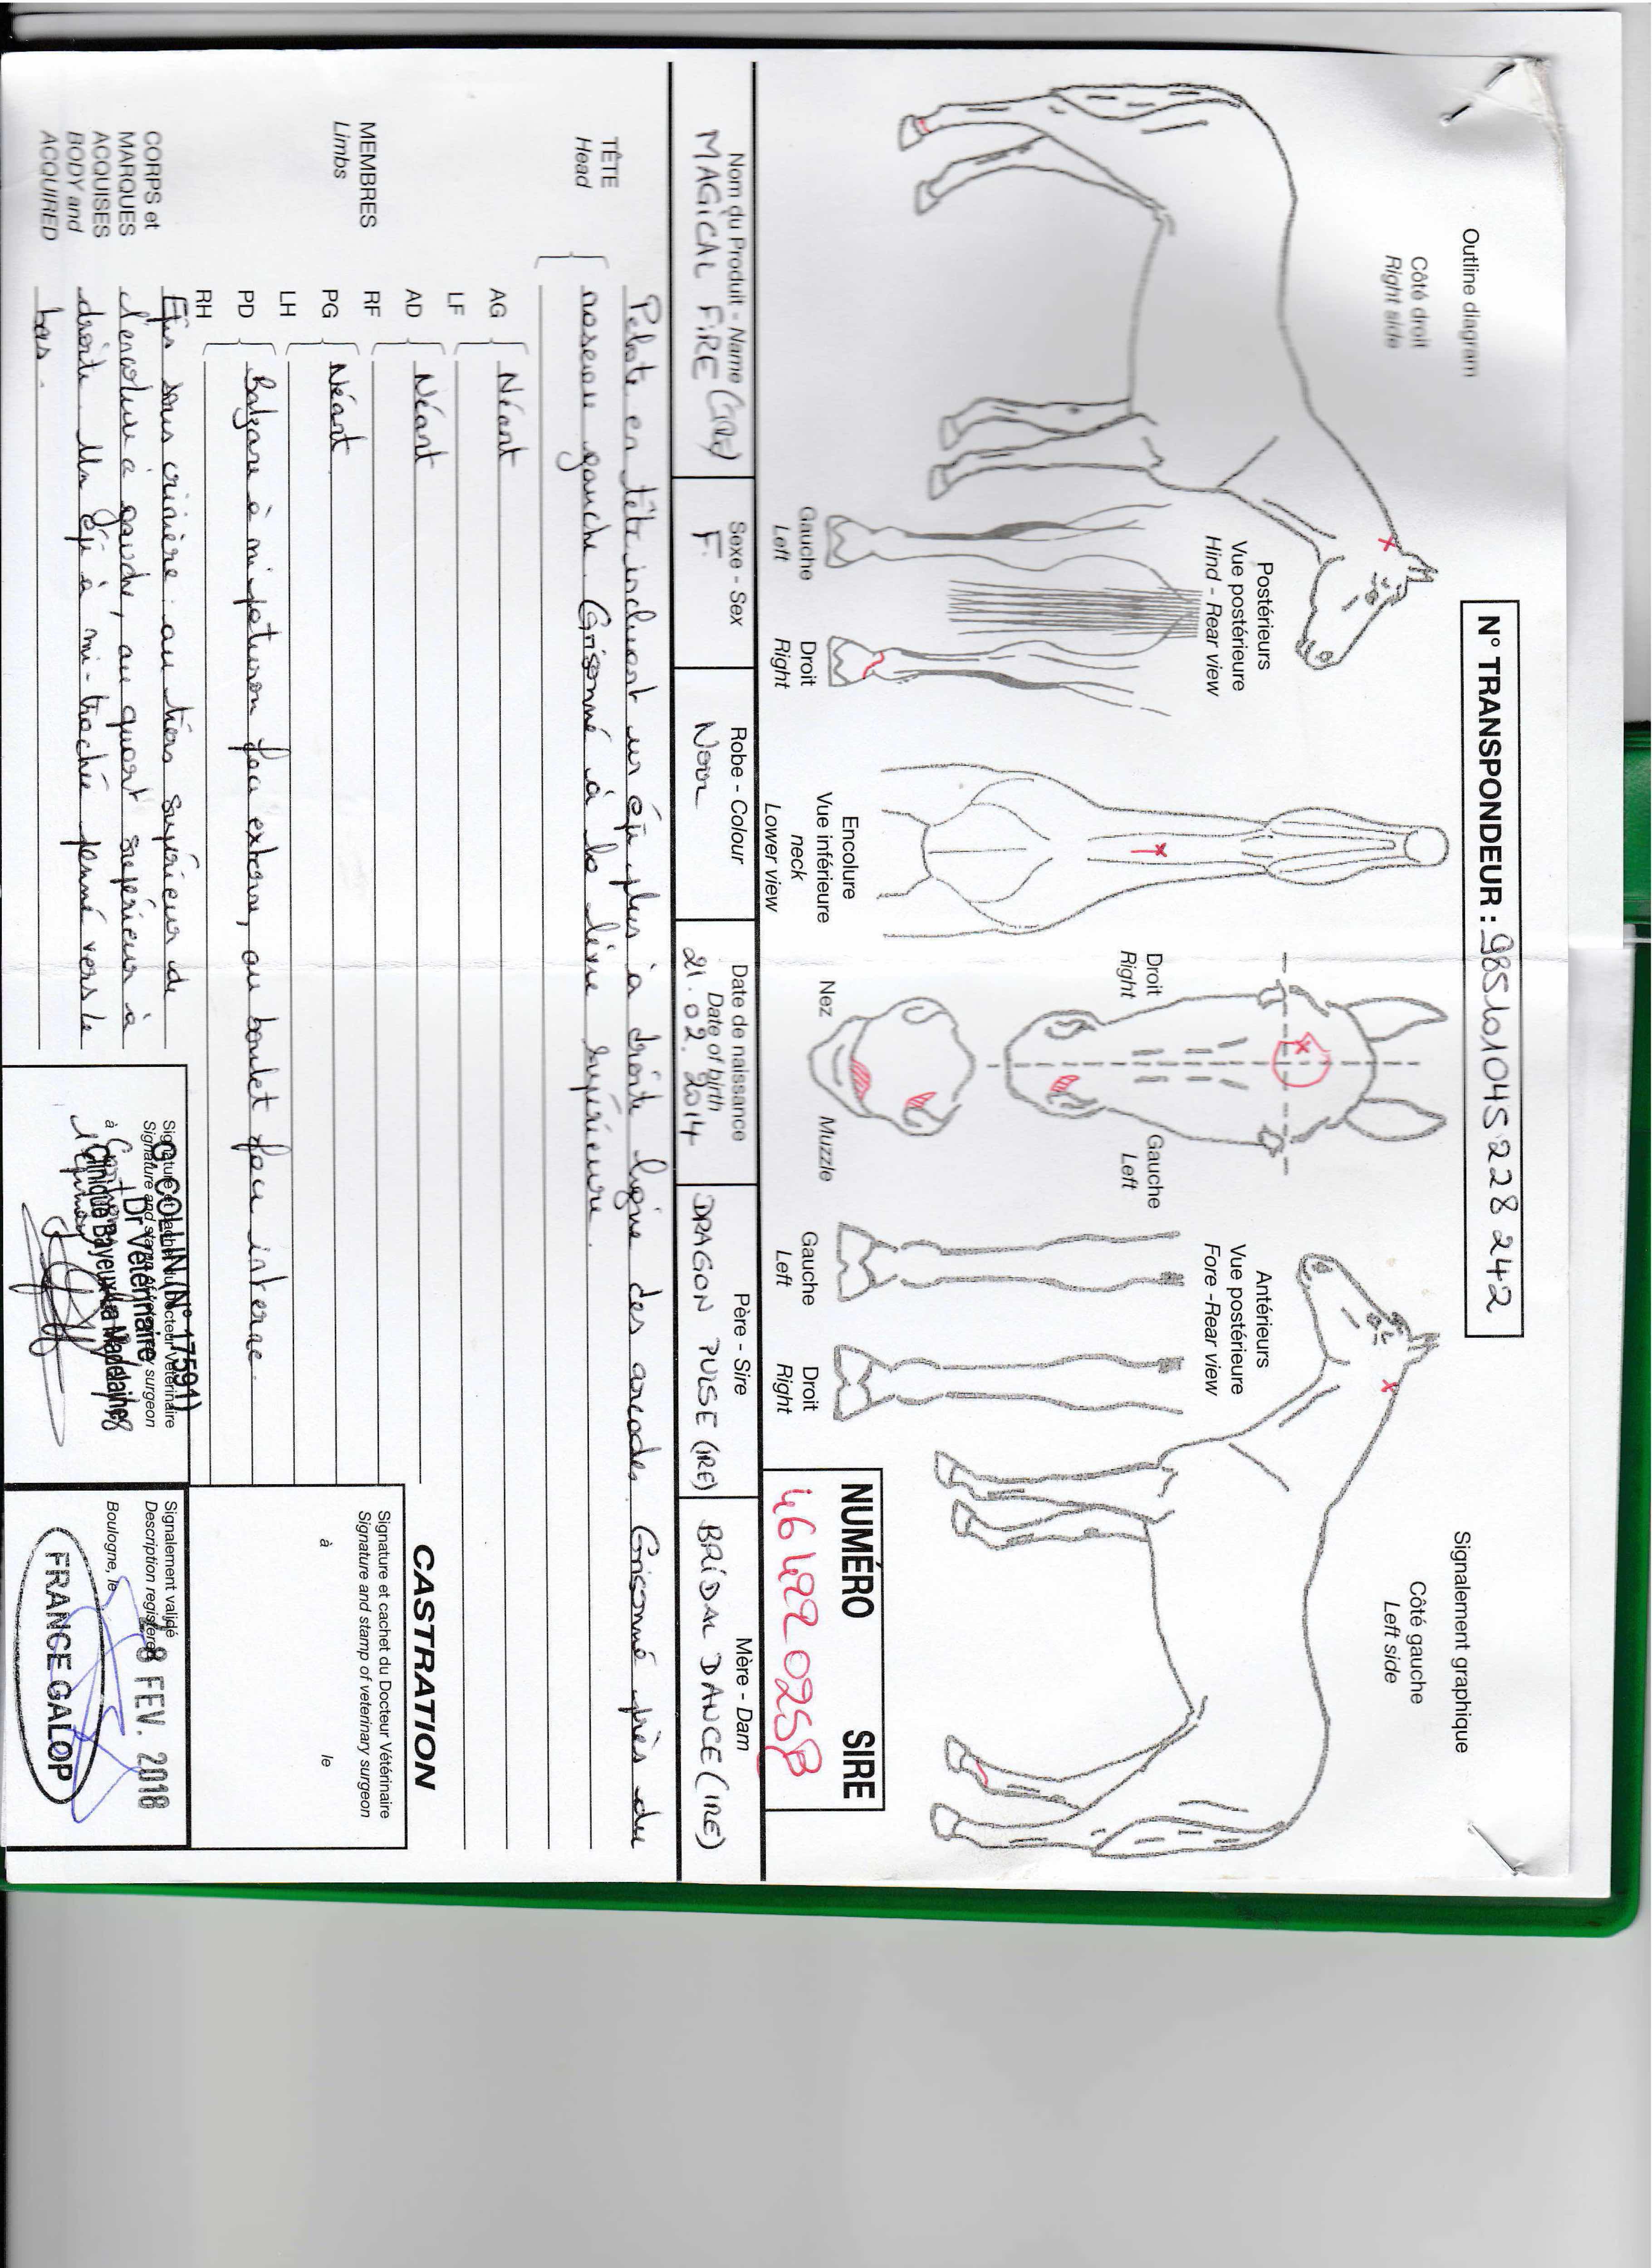 Outline diagram
N° TRANSPONDEUR : 985101045228242
Signalement graphique
Côté droit
Right side
Côté gauche
Left side
Postérieurs
Vue postérieure
Hind - Rear view
Droit
Right
Gauche
Left
Antérieurs
Vue postérieure
Fore - Rear view
Gauche
Left
Droit
Right
Encolure
Vue inférieure
neck
Lower view
Nez
Muzzle
Gauche
Left
Droit
Right
NUMÉRO SIRE
Nom du Produit - Name
MAGICAL FIRE
Sexe - Sex
F.
Robe - Colour
Noir
Date de naissance
Date of birth
21.02.2014
Père - Sire
DRAGON PULSE (IRE)
Mère - Dam
BRIDAL DANCE (IRE)
TÊTE
Head
Pelote en tête incluant un épi plus à droite ligne des arcades. Grisonné près du
naseau gauche. Grisonné à la lèvre supérieure.
MEMBRES
Limbs
AG
LF
Néant
AD
RF
Néant
PG
LH
Néant
PD
RH
Balzane à mi-paturon face externe, au boulet face interne.
CORPS et
MARQUES
ACQUISES
BODY and
ACQUIRED
Epis sous crinière : au tiers supérieur de
l'encolure à gauche, au quart supérieur à
droite. Un épi à mi-trachée penné vers le
bas.
CASTRATION
Signature et cachet du Docteur Vétérinaire
Signature and stamp of veterinary surgeon
à le
Signature et cachet du Docteur Vétérinaire
Signature and stamp of veterinary surgeon
à
COLLIN (N° 17591)
Dr Vétérinaire
Clinique Bayeux
Signalement validé
Description registered
Boulogne, le
8 FEV. 2018
FRANCE GALOP